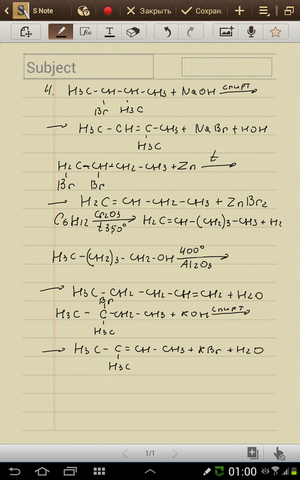 S Note
Закрыть
Сохран.
Subject
4. H3C-CH-CH-CH3 + NaOH спирт→
Br H3C
→ H3C-CH=C-CH3 + NaBr + HOH
H3C
H2C-CH+CH2-CH3+Zn t→
Br Br
→ H2C=CH-CH2-CH3 + ZnBr2
C6H12 Cr2O3→ t350° H2C=CH-(CH2)3-CH3+H2
H3C-(CH2)3-CH2-OH 400°→ Al2O3
→ H3C-CH2-CH2-CH=CH2 + H2O
Br
H3C-C-CH2-CH3 + KOH спирт→
H3C
→ H3C-C=CH-CH3 + KBr + H2O
H3C
1/1
01:00